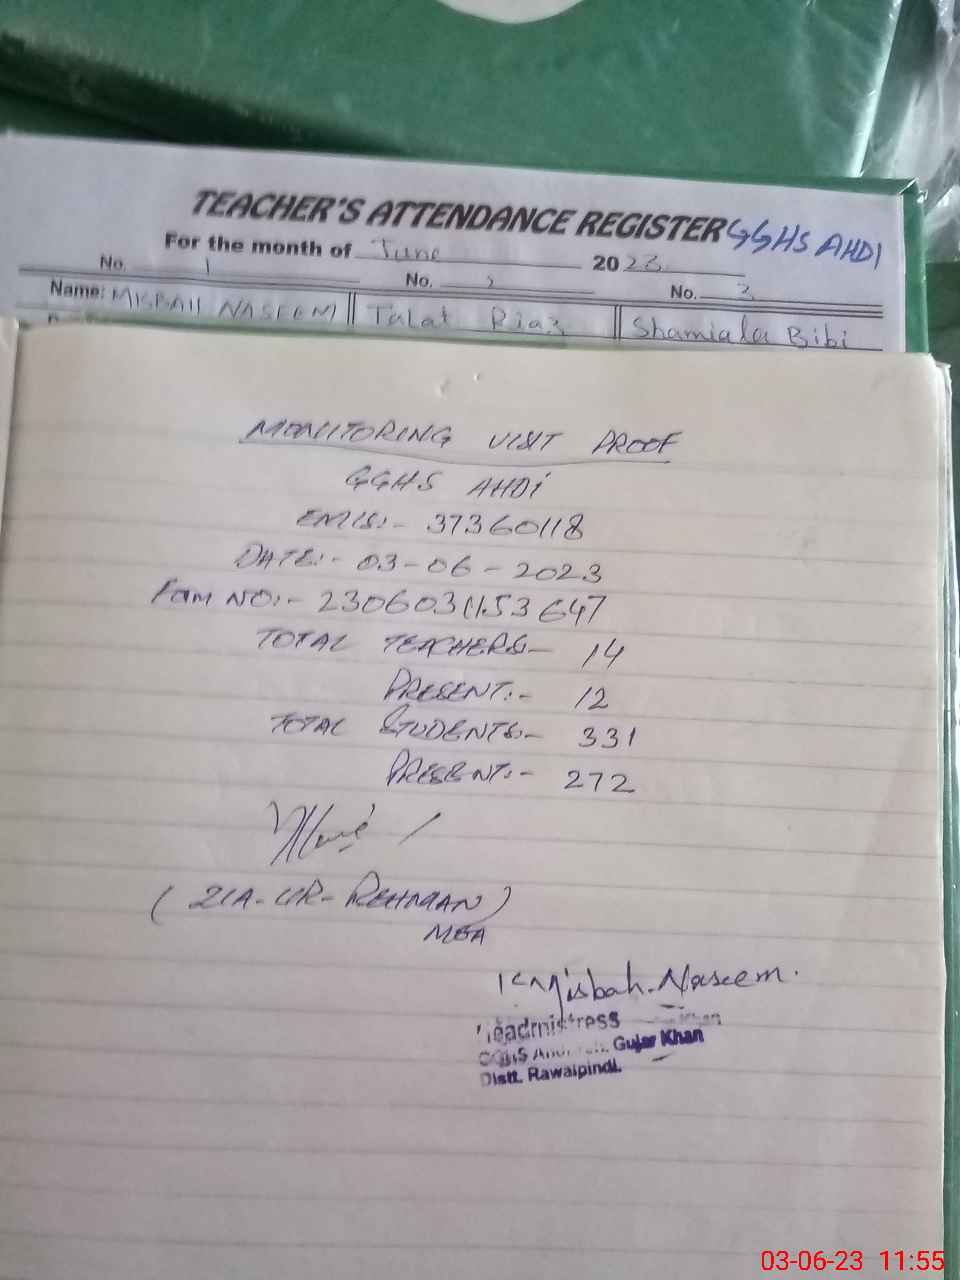 TEACHER'S ATTENDANCE REGISTER GGHS AHDI
For the month of June 2023
No. 1 No. 2 No. 3
Name: MISBAH NASEEM Talat Riaz Shamiala Bibi
MONITORING VISIT PROOF
GGHS AHDI
EMIS:- 37360118
DATE:- 03-06-2023
Fom NO:- 2306031153647
TOTAL TEACHERS:- 14
PRESENT:- 12
TOTAL STUDENTS:- 331
PRESENT:- 272
(ZIA-UR-REHMAN)
MEA
Misbah Naseem.
Headmistress
GGHS Gujar Khan
Distt. Rawalpindi.
03-06-23 11:55